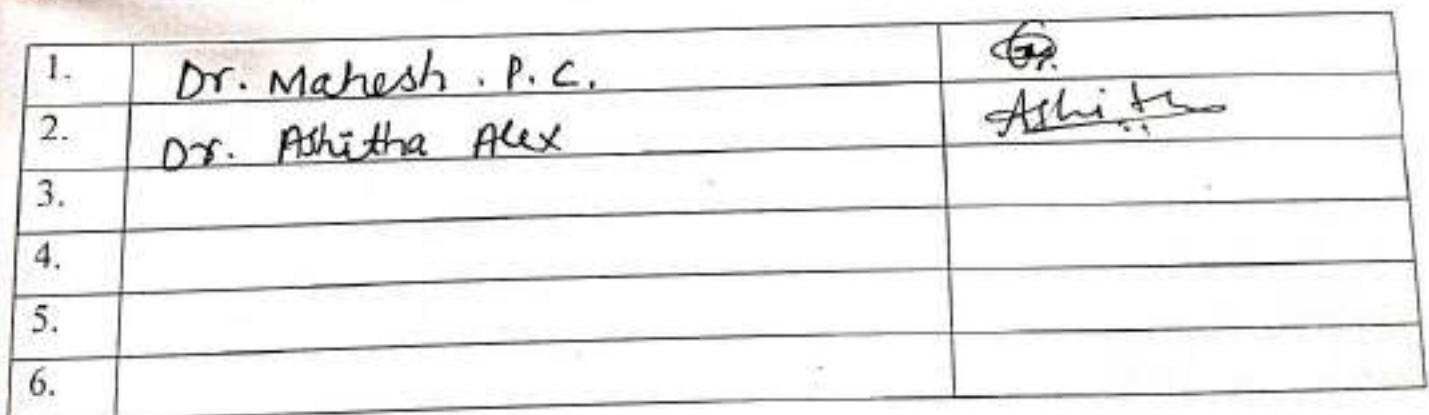 1. Dr. Mahesh . P. C.
2. Dr. Ashitha Alex Ashitha
3.
4.
5.
6.